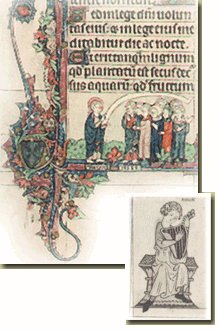 ed in lege dñi uolun
tas eius et in lege eius me
ditabitur die ac nocte
Et erit tanqm lignum
qd plantatum est secus
sus aquarum qd fructum